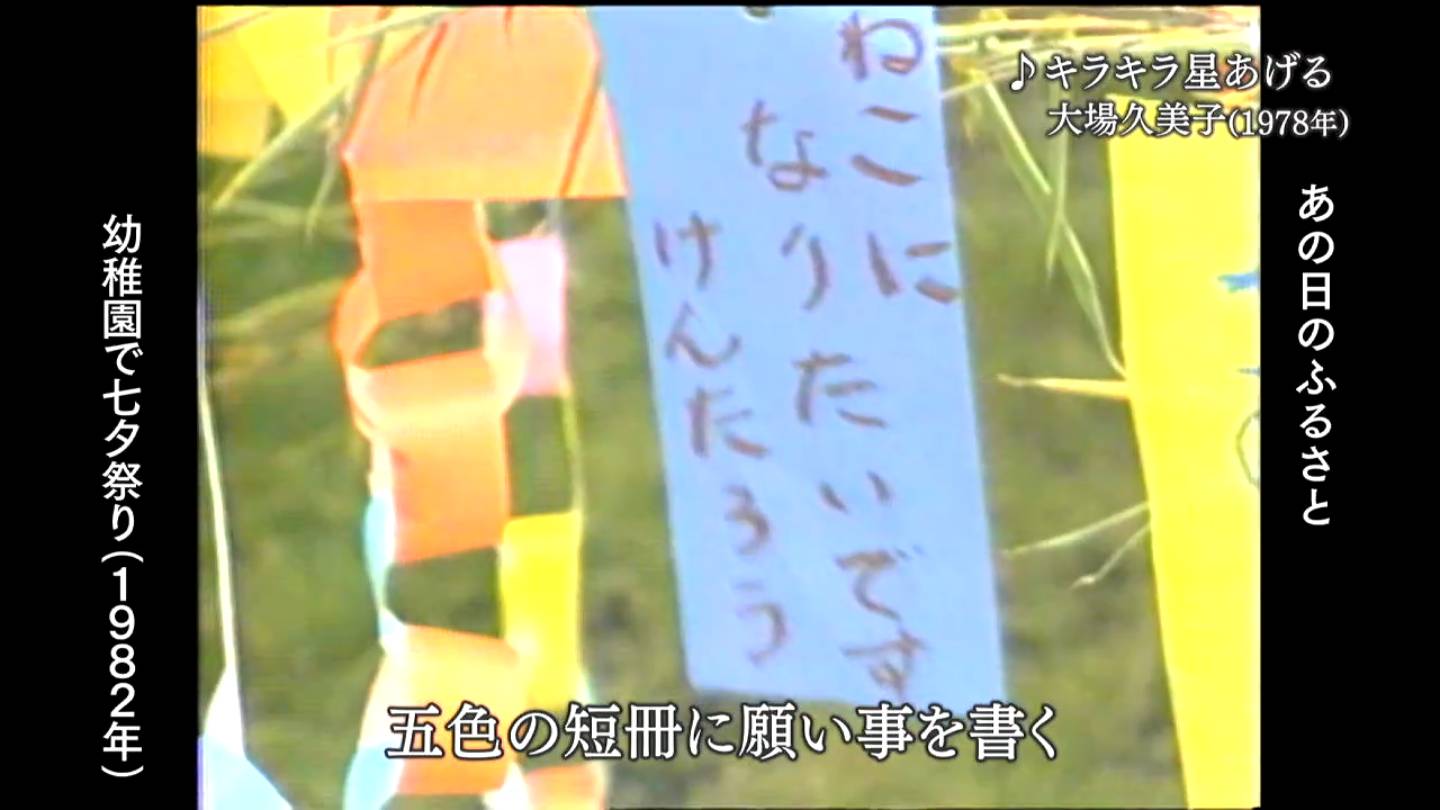 ♪キラキラ星あげる
大場久美子(1978年)
あの日のふるさと
ねこに
なりたいです
けんたろう
幼稚園で七夕祭り(1982年)
五色の短冊に願い事を書く